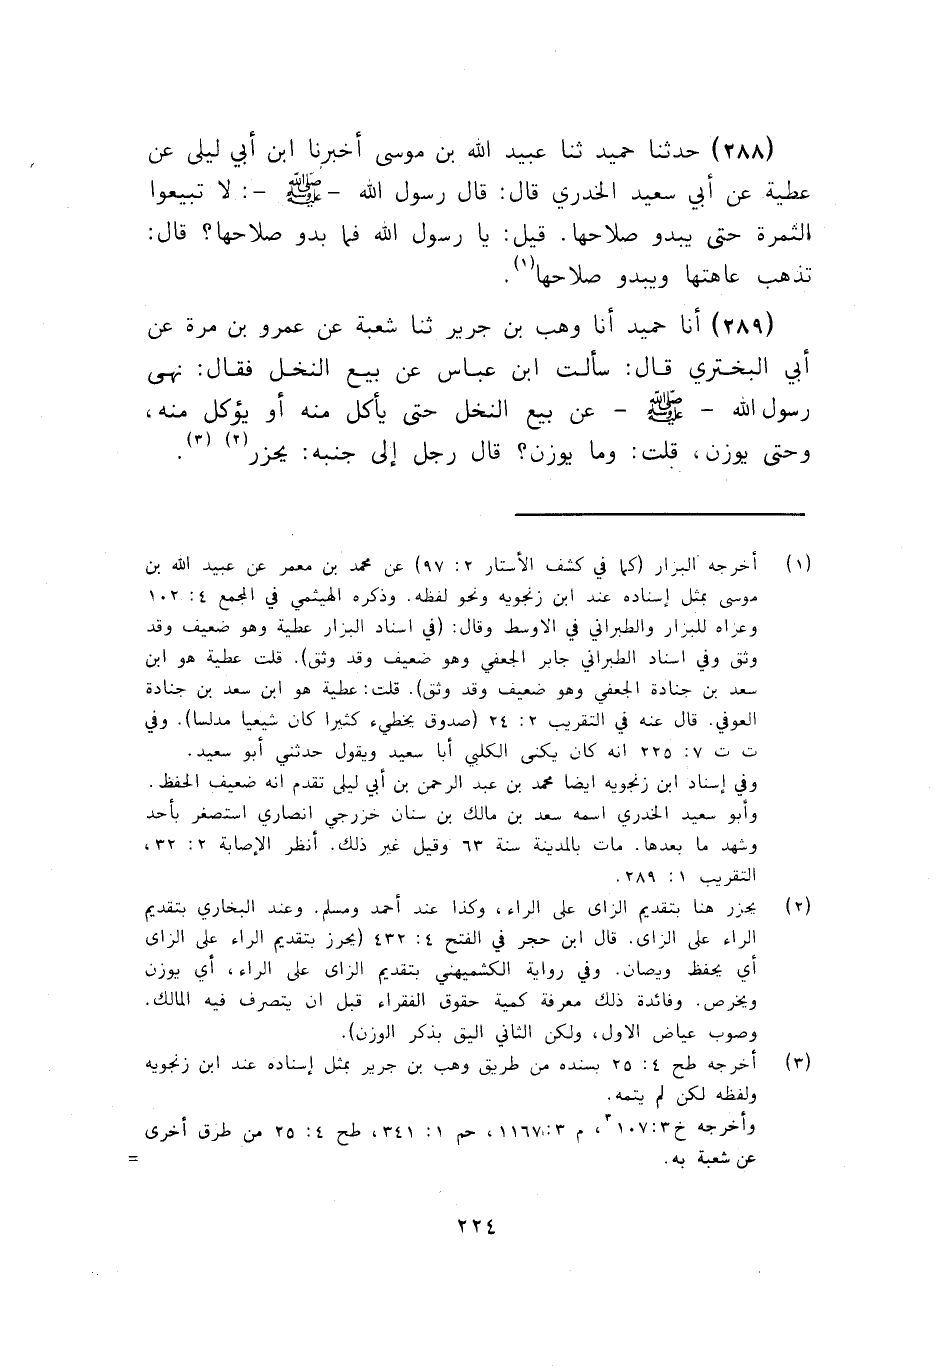 (٢٨٨) حدثنا حميد ثنا عبيد الله بن موسى أخبرنا ابن أبي ليلى عن
عطية عن أبي سعيد الخدري قال: قال رسول الله - ﷺ -: لا تبيعوا
الثمرة حتى يبدو صلاحها. قيل: يا رسول الله فما بدو صلاحها؟ قال:
تذهب عاهتها ويبدو صلاحها(١).
(٢٨٩) أنا حميد أنا وهب بن جرير ثنا شعبة عن عمرو بن مرة عن
أبي البختري قال: سألت ابن عباس عن بيع النخل فقال: نهى
رسول الله - ﷺ - عن بيع النخل حتى يأكل منه أو يؤكل منه،
وحتى يوزن، قلت: وما يوزن؟ قال رجل إلى جنبه: يحزر(٢) (٣).
(١) أخرجه البزار (كما في كشف الأستار ٢: ٩٧) عن محمد بن معمر عن عبيد الله بن
موسى بمثل إسناده عند ابن زنجويه ونحو لفظه. وذكره الهيثمي في المجمع ٤: ١٠٢
وعزاه للبزار والطبراني في الاوسط وقال: (في اسناد البزار عطية وهو ضعيف وقد
وثق وفي اسناد الطبراني جابر الجعفي وهو ضعيف وقد وثق). قلت عطية هو ابن
سعد بن جنادة الجعفي وهو ضعيف وقد وثق). قلت: عطية هو ابن سعد بن جنادة
العوفي. قال عنه في التقريب ٢: ٢٤ (صدوق يخطيء كثيرا كان شيعيا مدلسا). وفي
ت ت ٧: ٢٢٥ انه كان يكنى الكلبي أبا سعيد ويقول حدثني أبو سعيد.
وفي إسناد ابن زنجويه ايضا محمد بن عبد الرحمن بن أبي ليلى تقدم انه ضعيف الحفظ.
وأبو سعيد الخدري اسمه سعد بن مالك بن سنان خزرجي انصاري استصغر بأحد
وشهد ما بعدها. مات بالمدينة سنة ٦٣ وقيل غير ذلك. أنظر الإصابة ٢: ٣٢،
التقريب ١: ٢٨٩.
(٢) يحزر هنا بتقديم الزاى على الراء، وكذا عند أحمد ومسلم. وعند البخاري بتقديم
الراء على الزاى. قال ابن حجر في الفتح ٤: ٤٣٢ (يحرز بتقديم الراء على الزاى
أي يحفظ ويصان. وفي رواية الكشميهني بتقديم الزاى على الراء، أي يوزن
ويخرص. وفائدة ذلك معرفة كمية حقوق الفقراء قبل ان يتصرف فيه المالك.
وصوب عياض الاول، ولكن الثاني اليق بذكر الوزن).
(٣) أخرجه طح ٤: ٢٥ بسنده من طريق وهب بن جرير بمثل إسناده عند ابن زنجويه
ولفظه لكن لم يتمه.
وأخرجه خ ٣: ١٠٧، م ٣: ١١٦٧، حم ١: ٣٤١، طح ٤: ٢٥ من طرق أخرى
عن شعبة به. =
٢٢٤